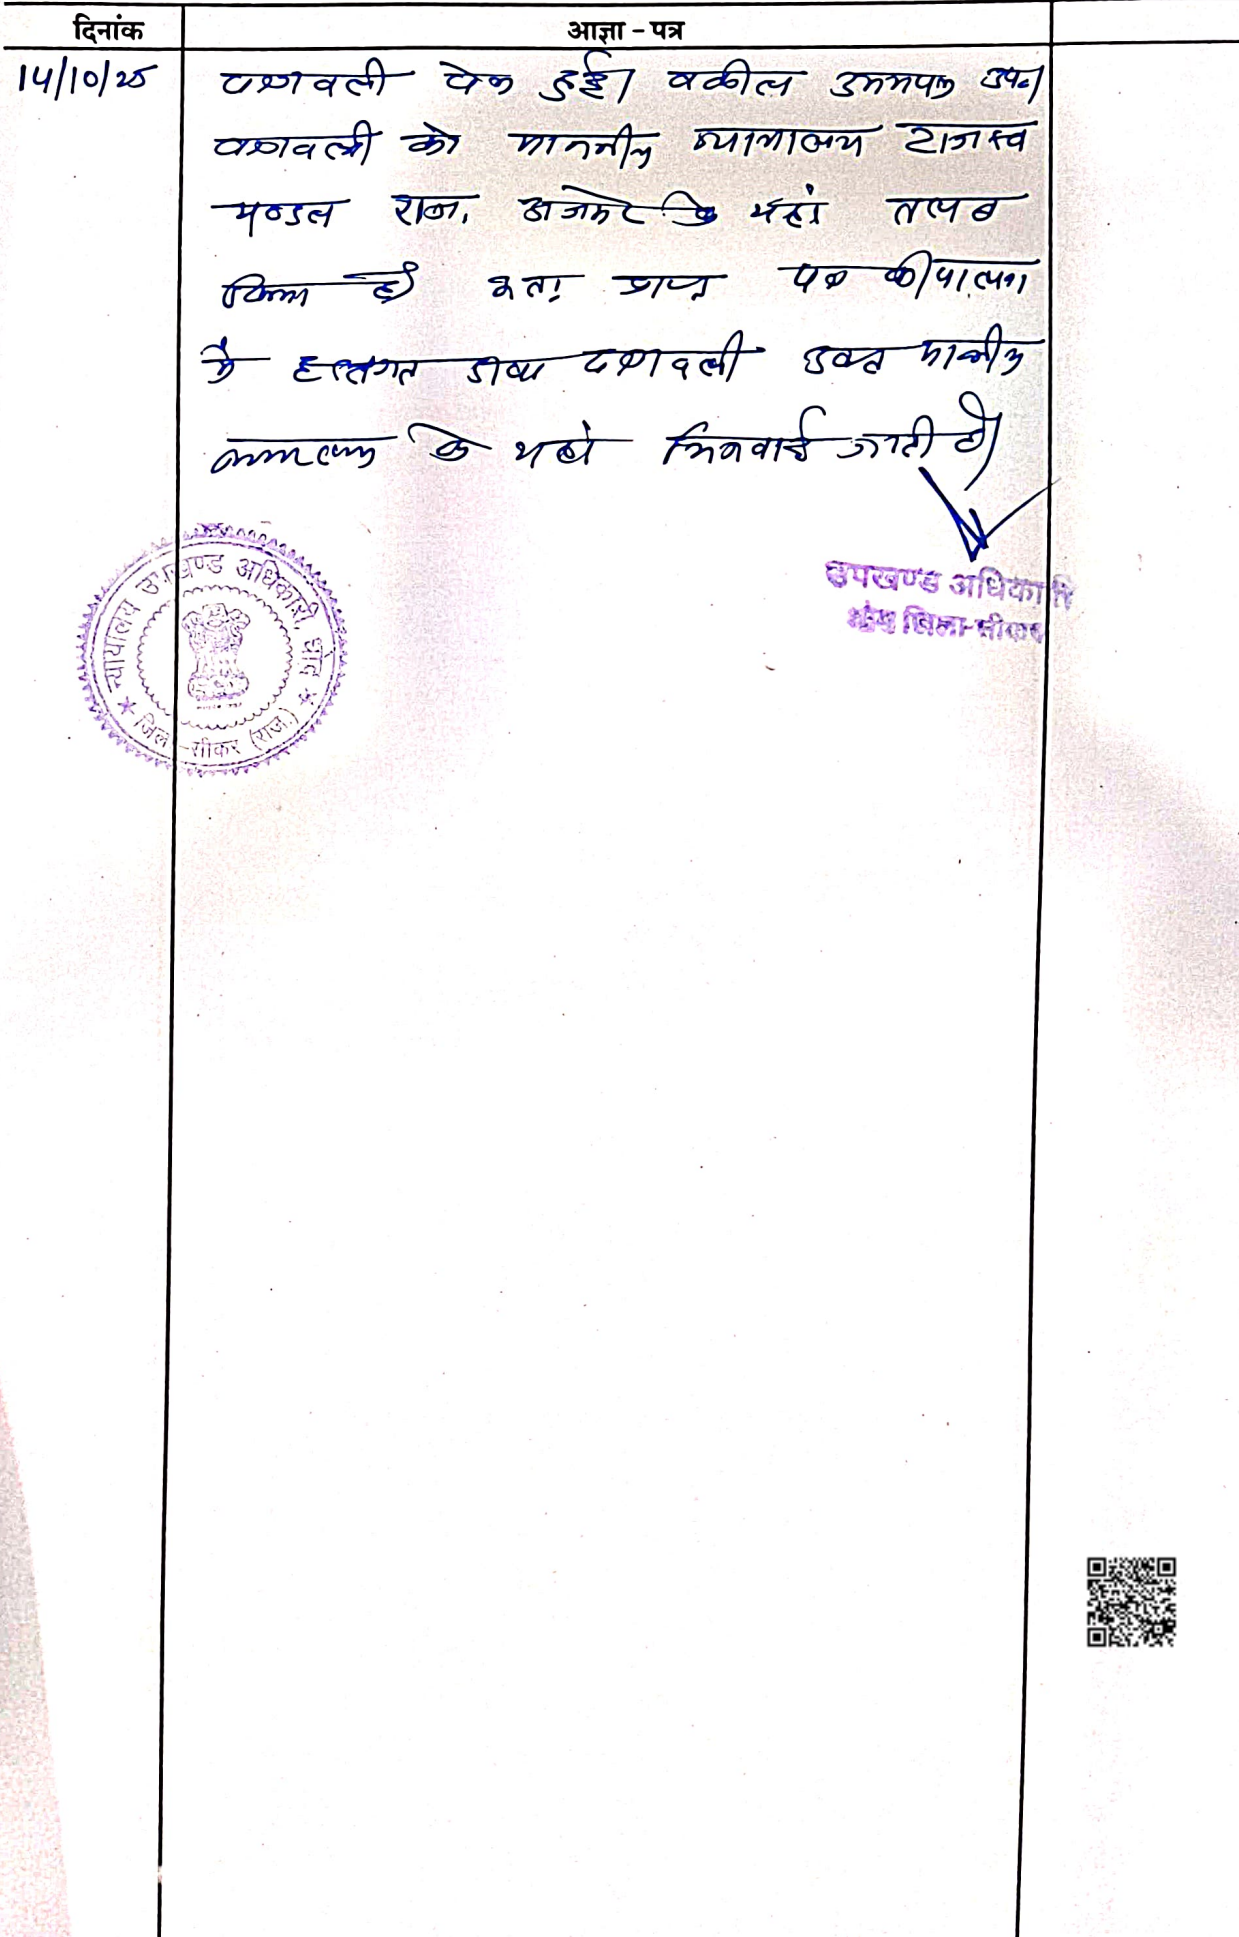 दिनांक
आज्ञा - पत्र
14/10/25
पत्रावली पेश हुई। वकील उभयपक्ष उप०।
पत्रावली को माननीय न्यायालय राजस्व
मण्डल राज. अजमेर के यहां तलब
किया है। अतः प्राप्त पत्र की पालना
में हस्तगत पत्रावली उक्त माननीय
न्यायालय के यहां भिजवाई जाती है।
उपखण्ड अधिकारी
धोद जिला-सीकर
न्यायालय उपखण्ड अधिकारी, धोद
जिला-सीकर (राज.)